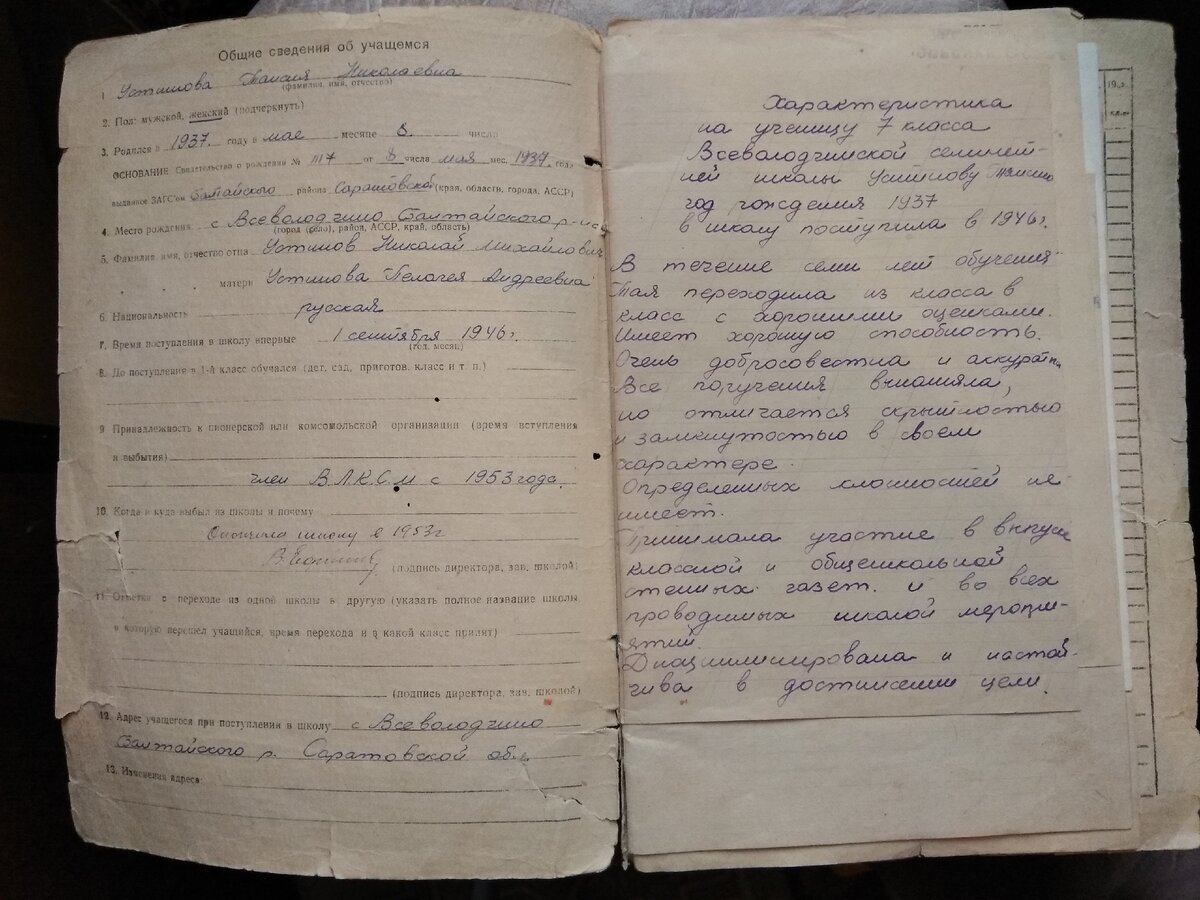 Общие сведения об учащемся
1 Устинова Таисия Николаевна
(фамилия, имя, отчество)
2. Пол: мужской, женский (подчеркнуть)
3. Родился в 1937. году в мае месяце 8. числа
ОСНОВАНИЕ Свидетельство о рождении № 117 от 8 числа мая мес. 1937. года
выданное ЗАГС'ом Балтайского района Саратовской (края, области, города, АССР)
4. Место рождения с Всеволодчино Балтайского р-на
(город (село), район, АССР, край, область)
5. Фамилия, имя, отчество отца Устинов Николай Михайлович
матери Устинова Пелагея Андреевна
6. Национальность русская
7. Время поступления в школу впервые 1 сентября 1946 г.
(год, месяц)
8. До поступления в 1-й класс обучался (дет. сад, приготов. класс и т. п.)
9 Принадлежность к пионерской или комсомольской организации (время вступления
и выбытия)
член В.Л.К.С.М с 1953 года.
10. Когда и куда выбыл из школы и почему
Окончила школу в 1953 г
(подпись директора, зав. школой)
11. Отметка о переходе из одной школы в другую (указать полное название школы,
в которую перешел учащийся, время перехода и в какой класс принят)
(подпись директора, зав. школой)
12. Адрес учащегося при поступления в школу с Всеволодчино
Балтайского р. Саратовской обл.
13. Изменения адреса:
Характеристика
на ученицу 7 класса
Всеволодчинской семилет-
ней школы Устинову Таисию
год рождения 1937
в школу поступила в 1946 г.
В течение семи лет обучения
Тая переходила из класса в
класс с хорошими оценками.
Имеет хорошую способность.
Очень добросовестна и аккуратна
Все поручения выполняла,
но отличается скрытностью
и замкнутостью в своем
характере.
Определенных склонностей не
имеет.
Принимала участие в выпуске
классной и общешкольной
стенных газет. и во всех
проводимых школой меропри-
ятий.
Дисциплинирована и настой-
чива в достижении цели.
19